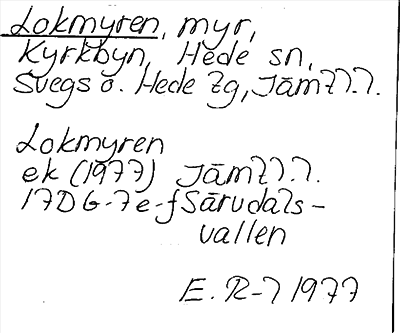 Lokmyren, myr,
Kyrkbyn, Hede sn,
Svegs o. Hede tg, Jämtl.l.
Lokmyren
ek (1977) Jämtl.l.
17D G-7e-f Särvdals-
vallen
E. R-l 1977